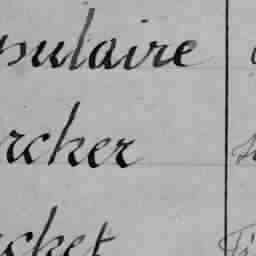 pulaire
rcher
cket